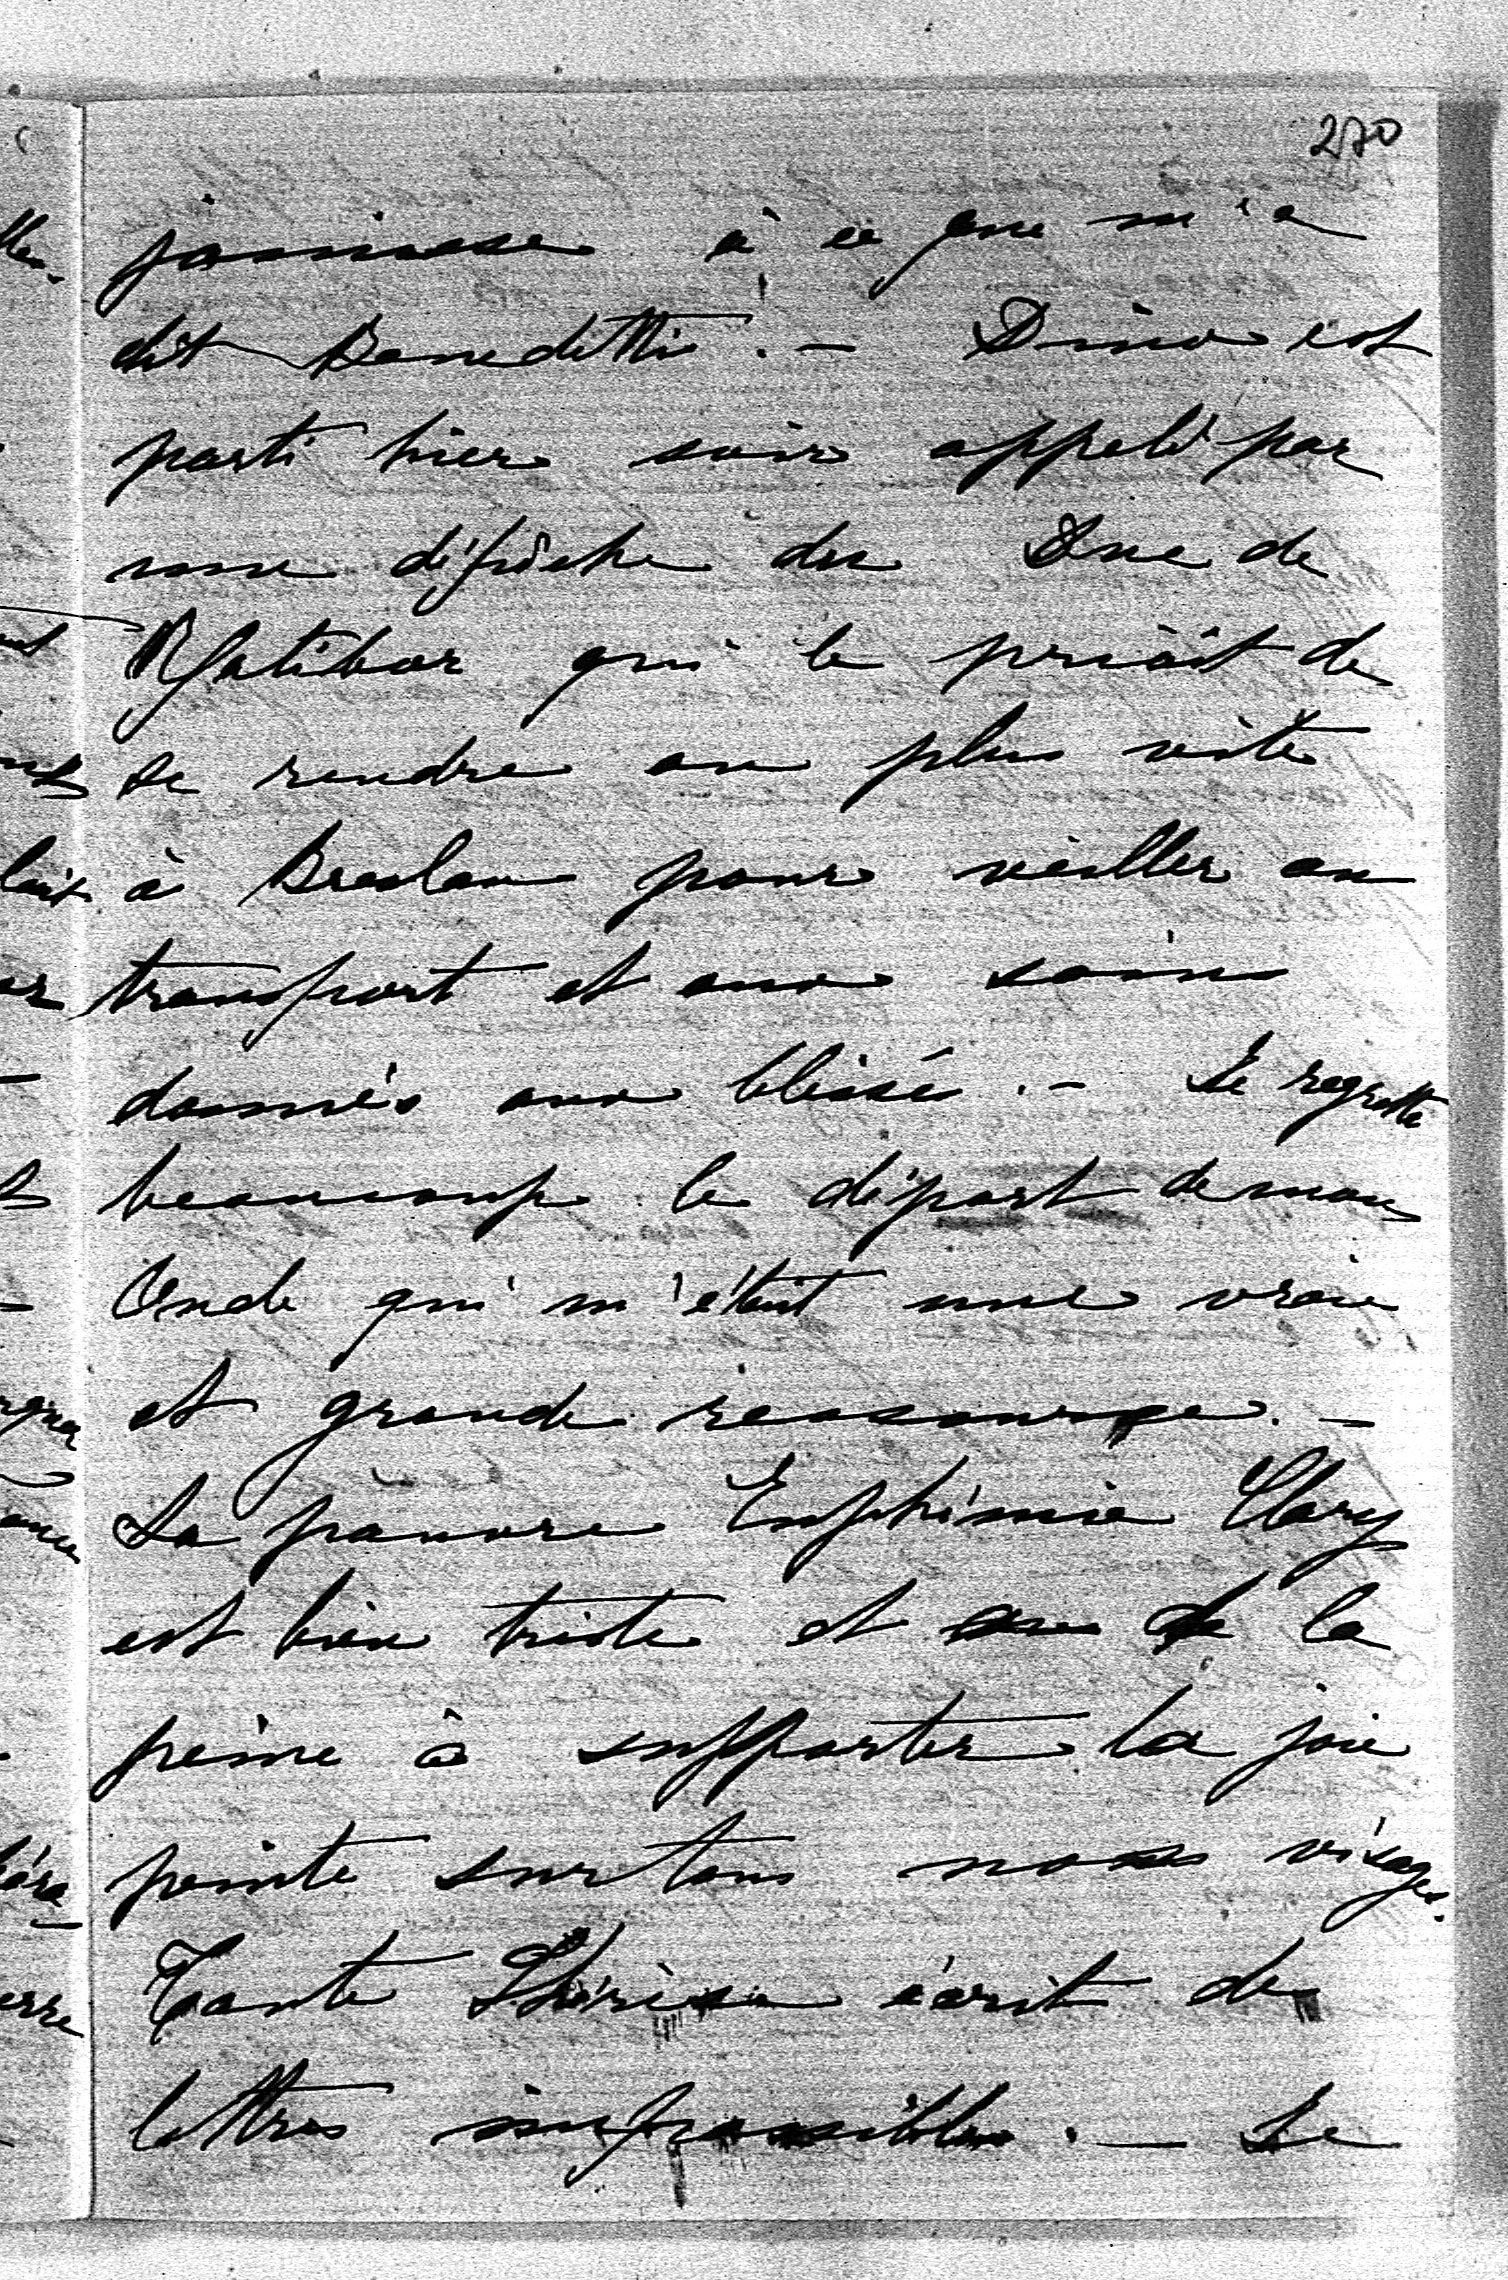 270
jouissance à ce que m'a
dit Benedetti. — Dino est
parti hier soir appelé par
une dépêche du Duc de
Ratibor qui le priait de
se rendre au plus vite
à Breslau pour veiller au
transport et aux soins
donnés aux blessés. — Je regrette
beaucoup le départ de mon
Oncle qui m'était une vraie
et grande ressource. —
La pauvre Euphémie Clary
est bien triste et a de la
peine à supporter la joie
peinte sur tous nos visages.
Tante Thérèse écrit des
lettres impossibles. — Le